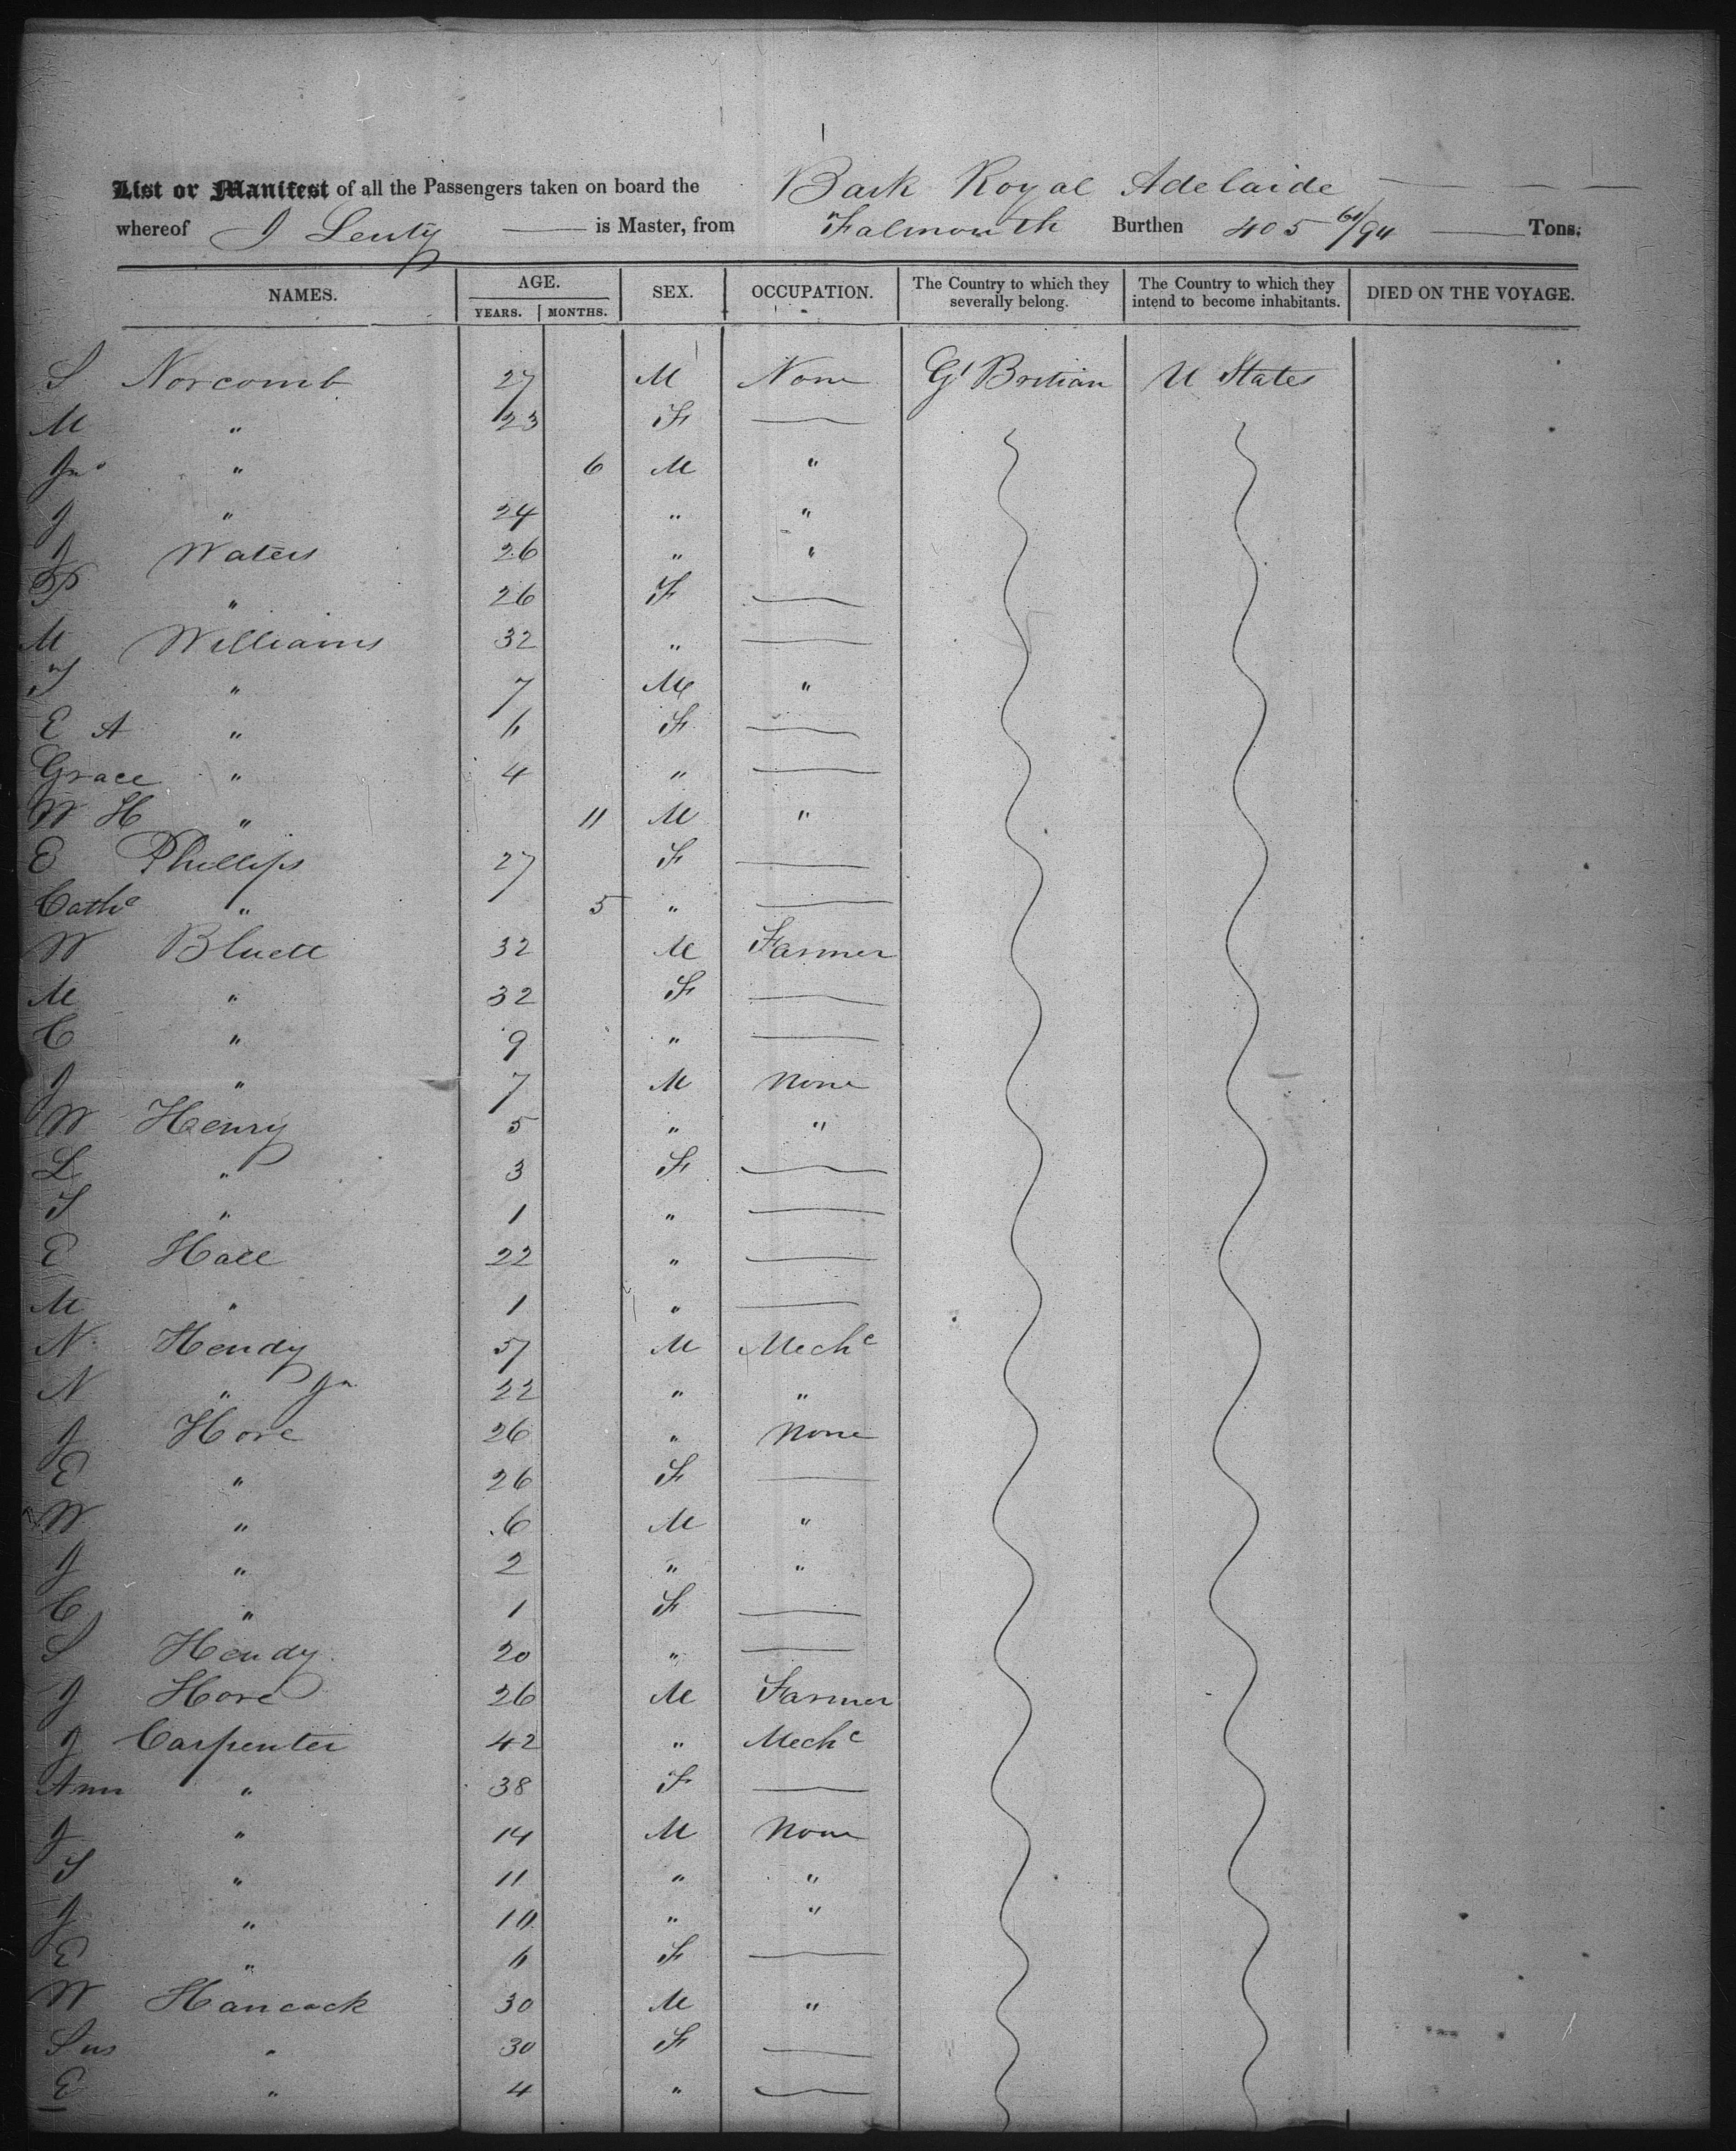 List or Manifest of all the Passengers taken on board the Bark Royal Adelaide
whereof J Lenty is Master, from Falmouth Burthen 405 61/94 Tons.
NAMES. AGE. SEX. OCCUPATION. The Country to which they severally belong. The Country to which they intend to become inhabitants. DIED ON THE VOYAGE.
YEARS. MONTHS.
S Norcomb 27 M None Gt Britian U States
M " 23 F
Jno " 6 M "
J " 24 " "
J Waters 26 " "
" 26 F
M Williams 32 "
J " 7 M "
E A " 6 F
Grace " 4 "
W H " 11 M "
E Phillips 27 F
Cathe " 5 "
W Bluett 32 M Farmer
M " 32 F
C " 9 "
J " 7 M None
W Henry 5 " "
L " 3 F
S " 1 "
E Hall 22 "
M " 1 "
N Hendy 57 M Mechc
N " Jn 22 " "
J Hore 26 " None
E " 26 F
W " 6 M "
J " 2 " "
C " 1 F
S Hendy 20 "
J Hore 26 M Farmer
J Carpenter 42 " Mechc
Ann " 38 F
J " 14 M None
S " 11 " "
J " 10 " "
E " 6 F
W Hancock 30 M "
Sus " 30 F
E " 4 "